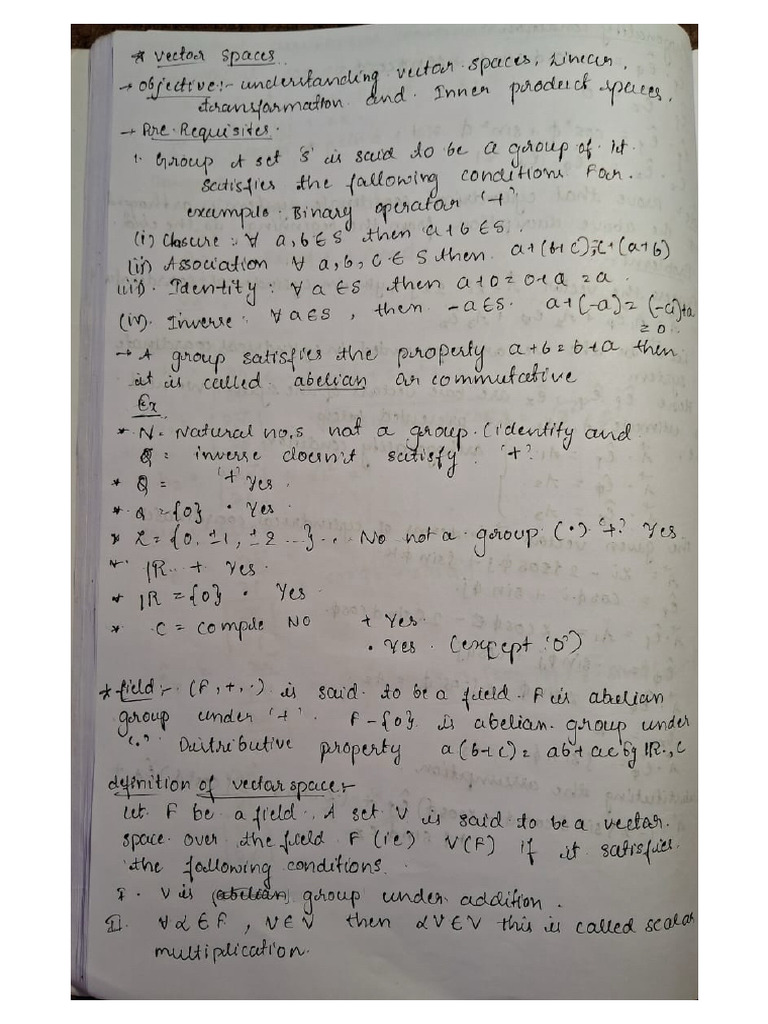 * Vector Spaces
→ Objective:- understanding vector spaces, Linear
transformation and Inner product spaces.
→ Pre-Requisites.
1. Group A set 'S' is said to be a group of it
satisfies the following conditions for.
example: Binary operator '+'
(i) Closure: ∀ a, b ∈ S then a+b ∈ S.
(ii) Association ∀ a, b, c ∈ S then a+(b+c)=c+(a+b)
(iii). Identity: ∀ a ∈ S then a+0=0+a=a.
(iv). Inverse: ∀ a ∈ S, then -a ∈ S. a+(-a)=(-a)+a
=0.
→ A group satisfies the property a+b=b+a then
it is called abelian or commutative
Ex
* N= Natural no,s not a group. (identity and
Q= inverse doesn't satisfy '+'
* Q= '+' Yes.
* Q={0} • Yes.
* Z={0, ±1, ±2...}.. No not a group (•) '+' Yes
* IR.. + Yes.
* IR={0} • Yes
* C= comple NO + Yes.
• Yes. (except '0')
* field:- (F,+,.) is said to be a field. F is abelian
group under '+'. F-{0} is abelian group under
'.' Distributive property a(b+c)=ab+ac Eg IR., C
definition of vector space:-
Let F be a field. A set V is said to be a vector
space over the field F (ie) V(F) if it satisfies
the following conditions.
I. V is (abelian) group under addition.
II. ∀ α ∈ F, V ∈ V then αV ∈ V this is called scalar
multiplication.